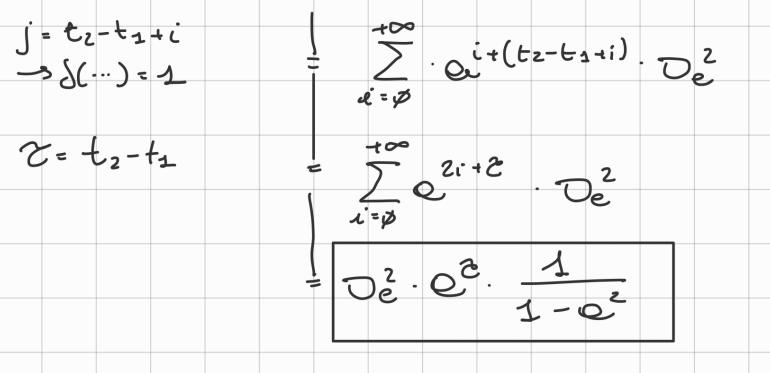 j = t₂ - t₁ + i
→ δ(...) = 1
τ = t₂ - t₁
= ∑_{i=∅}^{+∞} · a^{i+(t₂-t₁+i)} · σₑ²
= ∑_{i=∅}^{+∞} a^{2i+τ} · σₑ²
= σₑ² · a^τ · 1/(1 - a²)